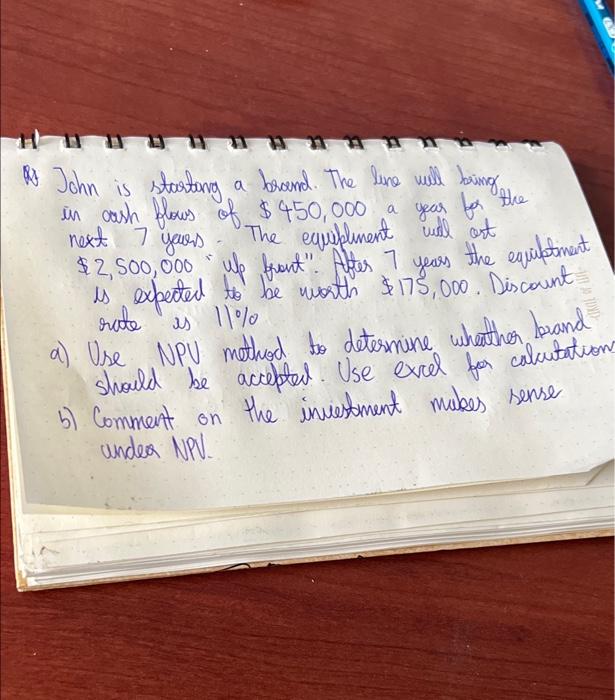 John is starting a brand. The line will bring
in cash flows of $450,000 a year for the
next 7 years. The equipment will cost
$2,500,000 "up front". After 7 years the equiptment
is expected to be worth $175,000. Discount
rate is 11%
a) Use NPV method to determine wheather brand
should be accepted. Use excel for calculations
b) Comment on the investment makes sense
under NPV.